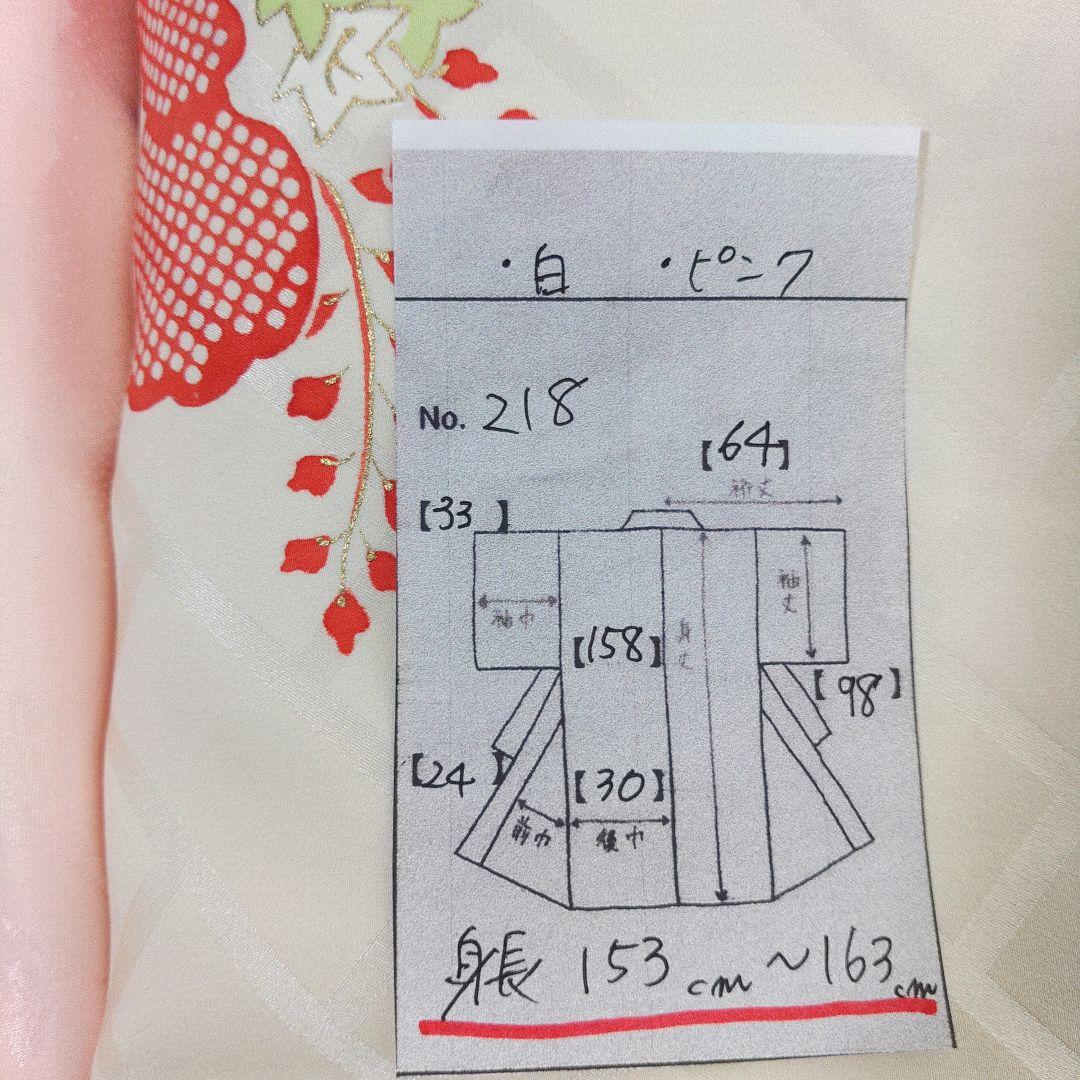 ・白 ・ピンク
No. 218
【64】
裄丈
【33】
袖巾
袖丈
【158】
身丈
【98】
【24】
【30】
前巾
後巾
身長 153cm～163cm